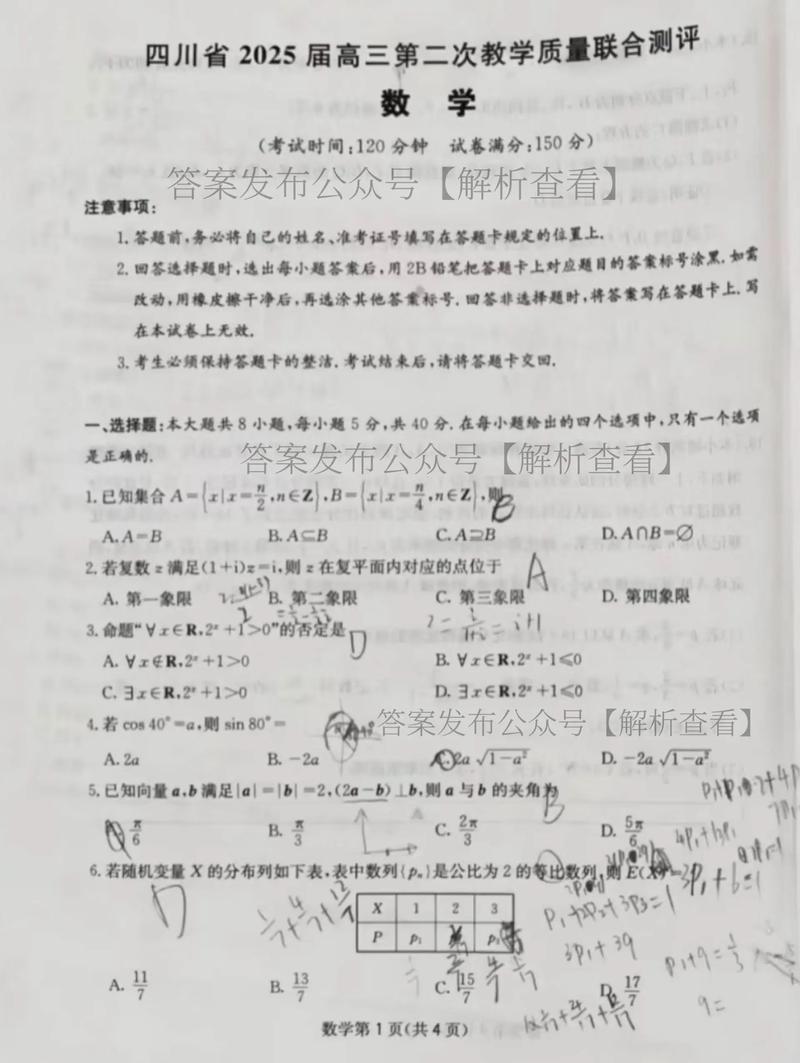 四川省 2025 届高三第二次教学质量联合测评
数 学
(考试时间:120 分钟 试卷满分:150 分)
答案发布公众号【解析查看】
注意事项:
1. 答题前,务必将自己的姓名、准考证号填写在答题卡规定的位置上.
2. 回答选择题时,选出每小题答案后,用 2B 铅笔把答题卡上对应题目的答案标号涂黑. 如需
改动,用橡皮擦干净后,再选涂其他答案标号. 回答非选择题时,将答案写在答题卡上. 写
在本试卷上无效.
3. 考生必须保持答题卡的整洁. 考试结束后,请将答题卡交回.
一、选择题:本大题共 8 小题,每小题 5 分,共 40 分. 在每小题给出的四个选项中,只有一个选项
是正确的.
答案发布公众号【解析查看】
1. 已知集合 A={x|x=n/2,n∈Z},B={x|x=n/4,n∈Z},则 B
A. A=B B. A⊆B C. A⊇B D. A∩B=∅
2. 若复数 z 满足(1+i)z=i,则 z 在复平面内对应的点位于 A
A. 第一象限 B. 第二象限 C. 第三象限 D. 第四象限
3. 命题“∀x∈R,2ˣ+1>0”的否定是 D
A. ∀x∉R,2ˣ+1>0 B. ∀x∈R,2ˣ+1⩽0
C. ∃x∈R,2ˣ+1>0 D. ∃x∈R,2ˣ+1⩽0
4. 若 cos 40°=a,则 sin 80°=
答案发布公众号【解析查看】
A. 2a B. -2a C. 2a√(1-a²) D. -2a√(1-a²)
5. 已知向量 a,b 满足|a|=|b|=2,(2a-b)⊥b,则 a 与 b 的夹角为 B
A. π/6 B. π/3 C. 2π/3 D. 5π/6
6. 若随机变量 X 的分布列如下表,表中数列{pₙ}是公比为 2 的等比数列,则 E(X)=
D
X 1 2 3
P p₁ p₃
A. 11/7 B. 13/7 C. 15/7 D. 17/7
数学第 1 页(共 4 页)